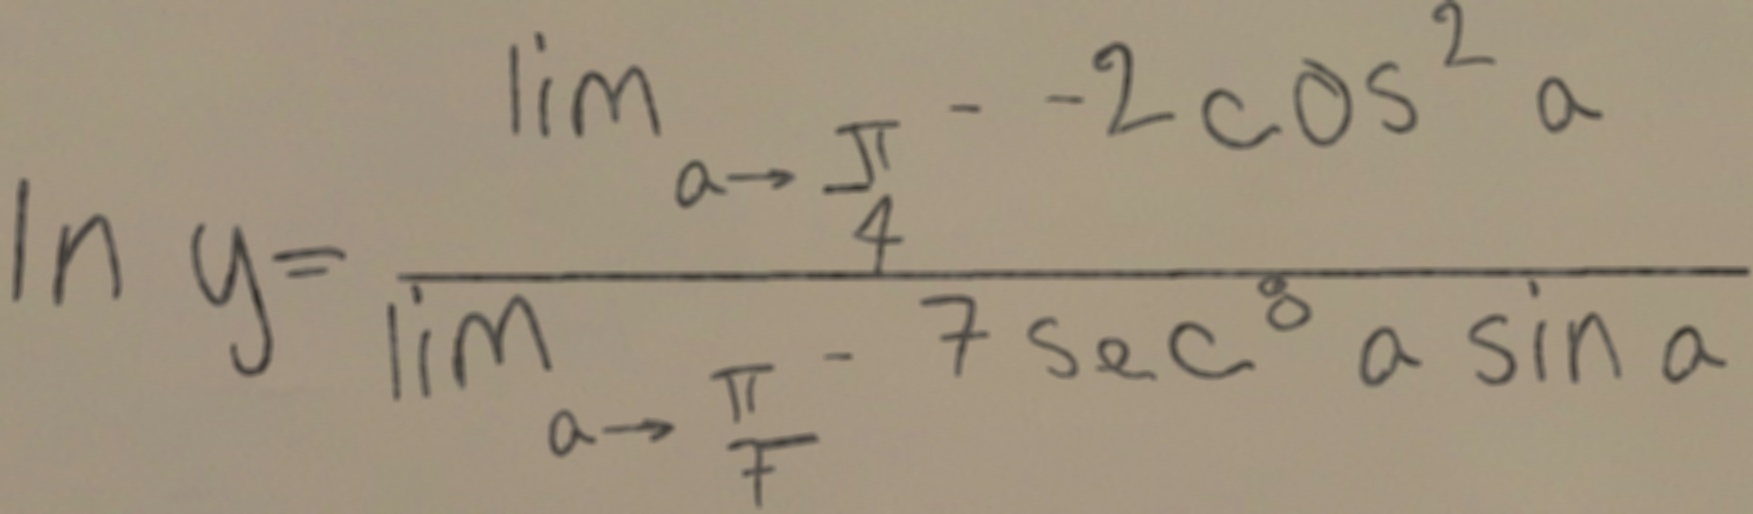 \ln y = \frac{\lim_{a \to \frac{\pi}{4}^{-}} -2\cos^{2} a}{\lim_{a \to \frac{\pi}{7}^{-}} 7\sec^{8} a \sin a}